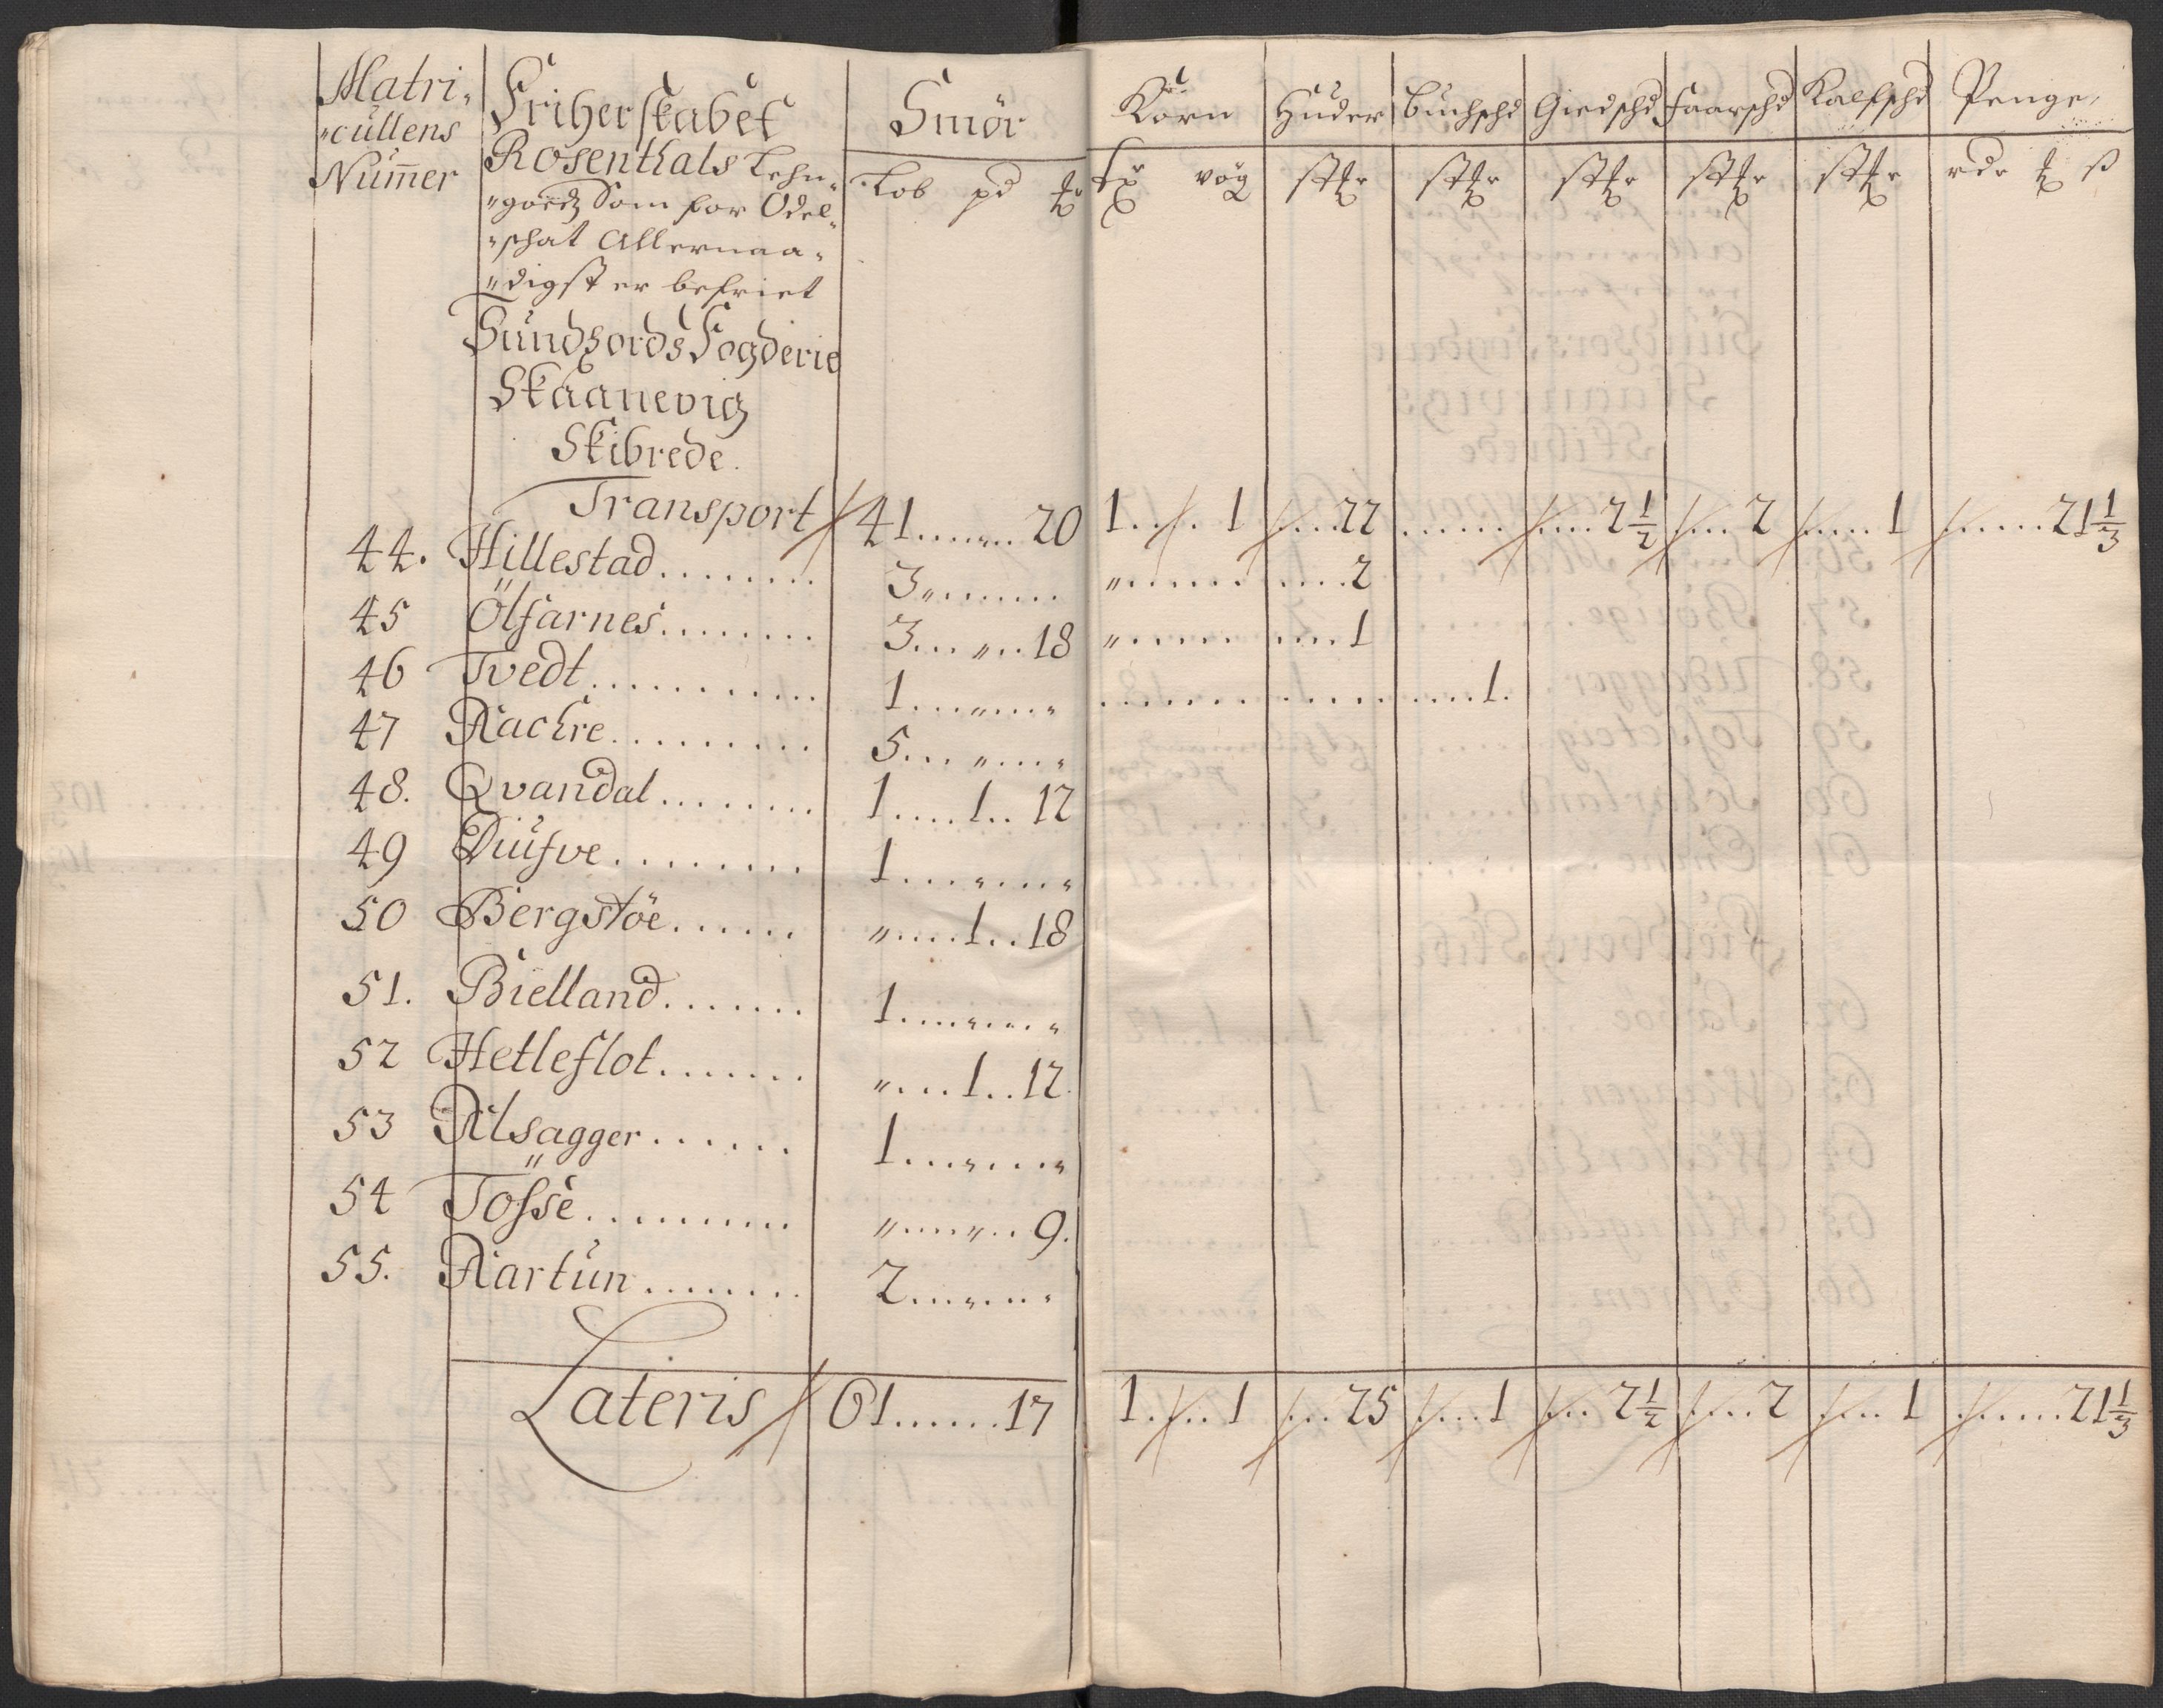 Matri-
-cullens
Nummer
Friherskabet
Rosenthals Lehn-
-goedz Som for Odel-
-schat Allernaa-
-digst er befriet
Sundhords Fogderie
Skaanevig
Skibrede.
Smör
Løb pd
Korn Huder Buchschd Giedschd Faarschd Kalfschd Penge
vog
Transport 41......20 1....1 ...22 ...... ....2½ ...2 ....1 ......21⅓
44. Hillestad........ 3....... "..... ....2
45 Ölfarnes........ 3...."..18 "..... ....1
46 Tvedt........... 1......." ................1.
47 Aachre......... 5..."...."
48. Qvandal........ 1....1..12
49 Diufve........ 1...."...."
50 Bergstöe...... "....1..18
51. Bielland....... 1...."...."
52 Hetleflot....... "....1..12.
53 Alsagger...... 1...."...."
54 Tösse......... "....."..9.
55. Aartun....... 2...."...."
Lateris 61......17 1....1 ...25 ....1 ...2½ ....2 ....1 ......21⅓